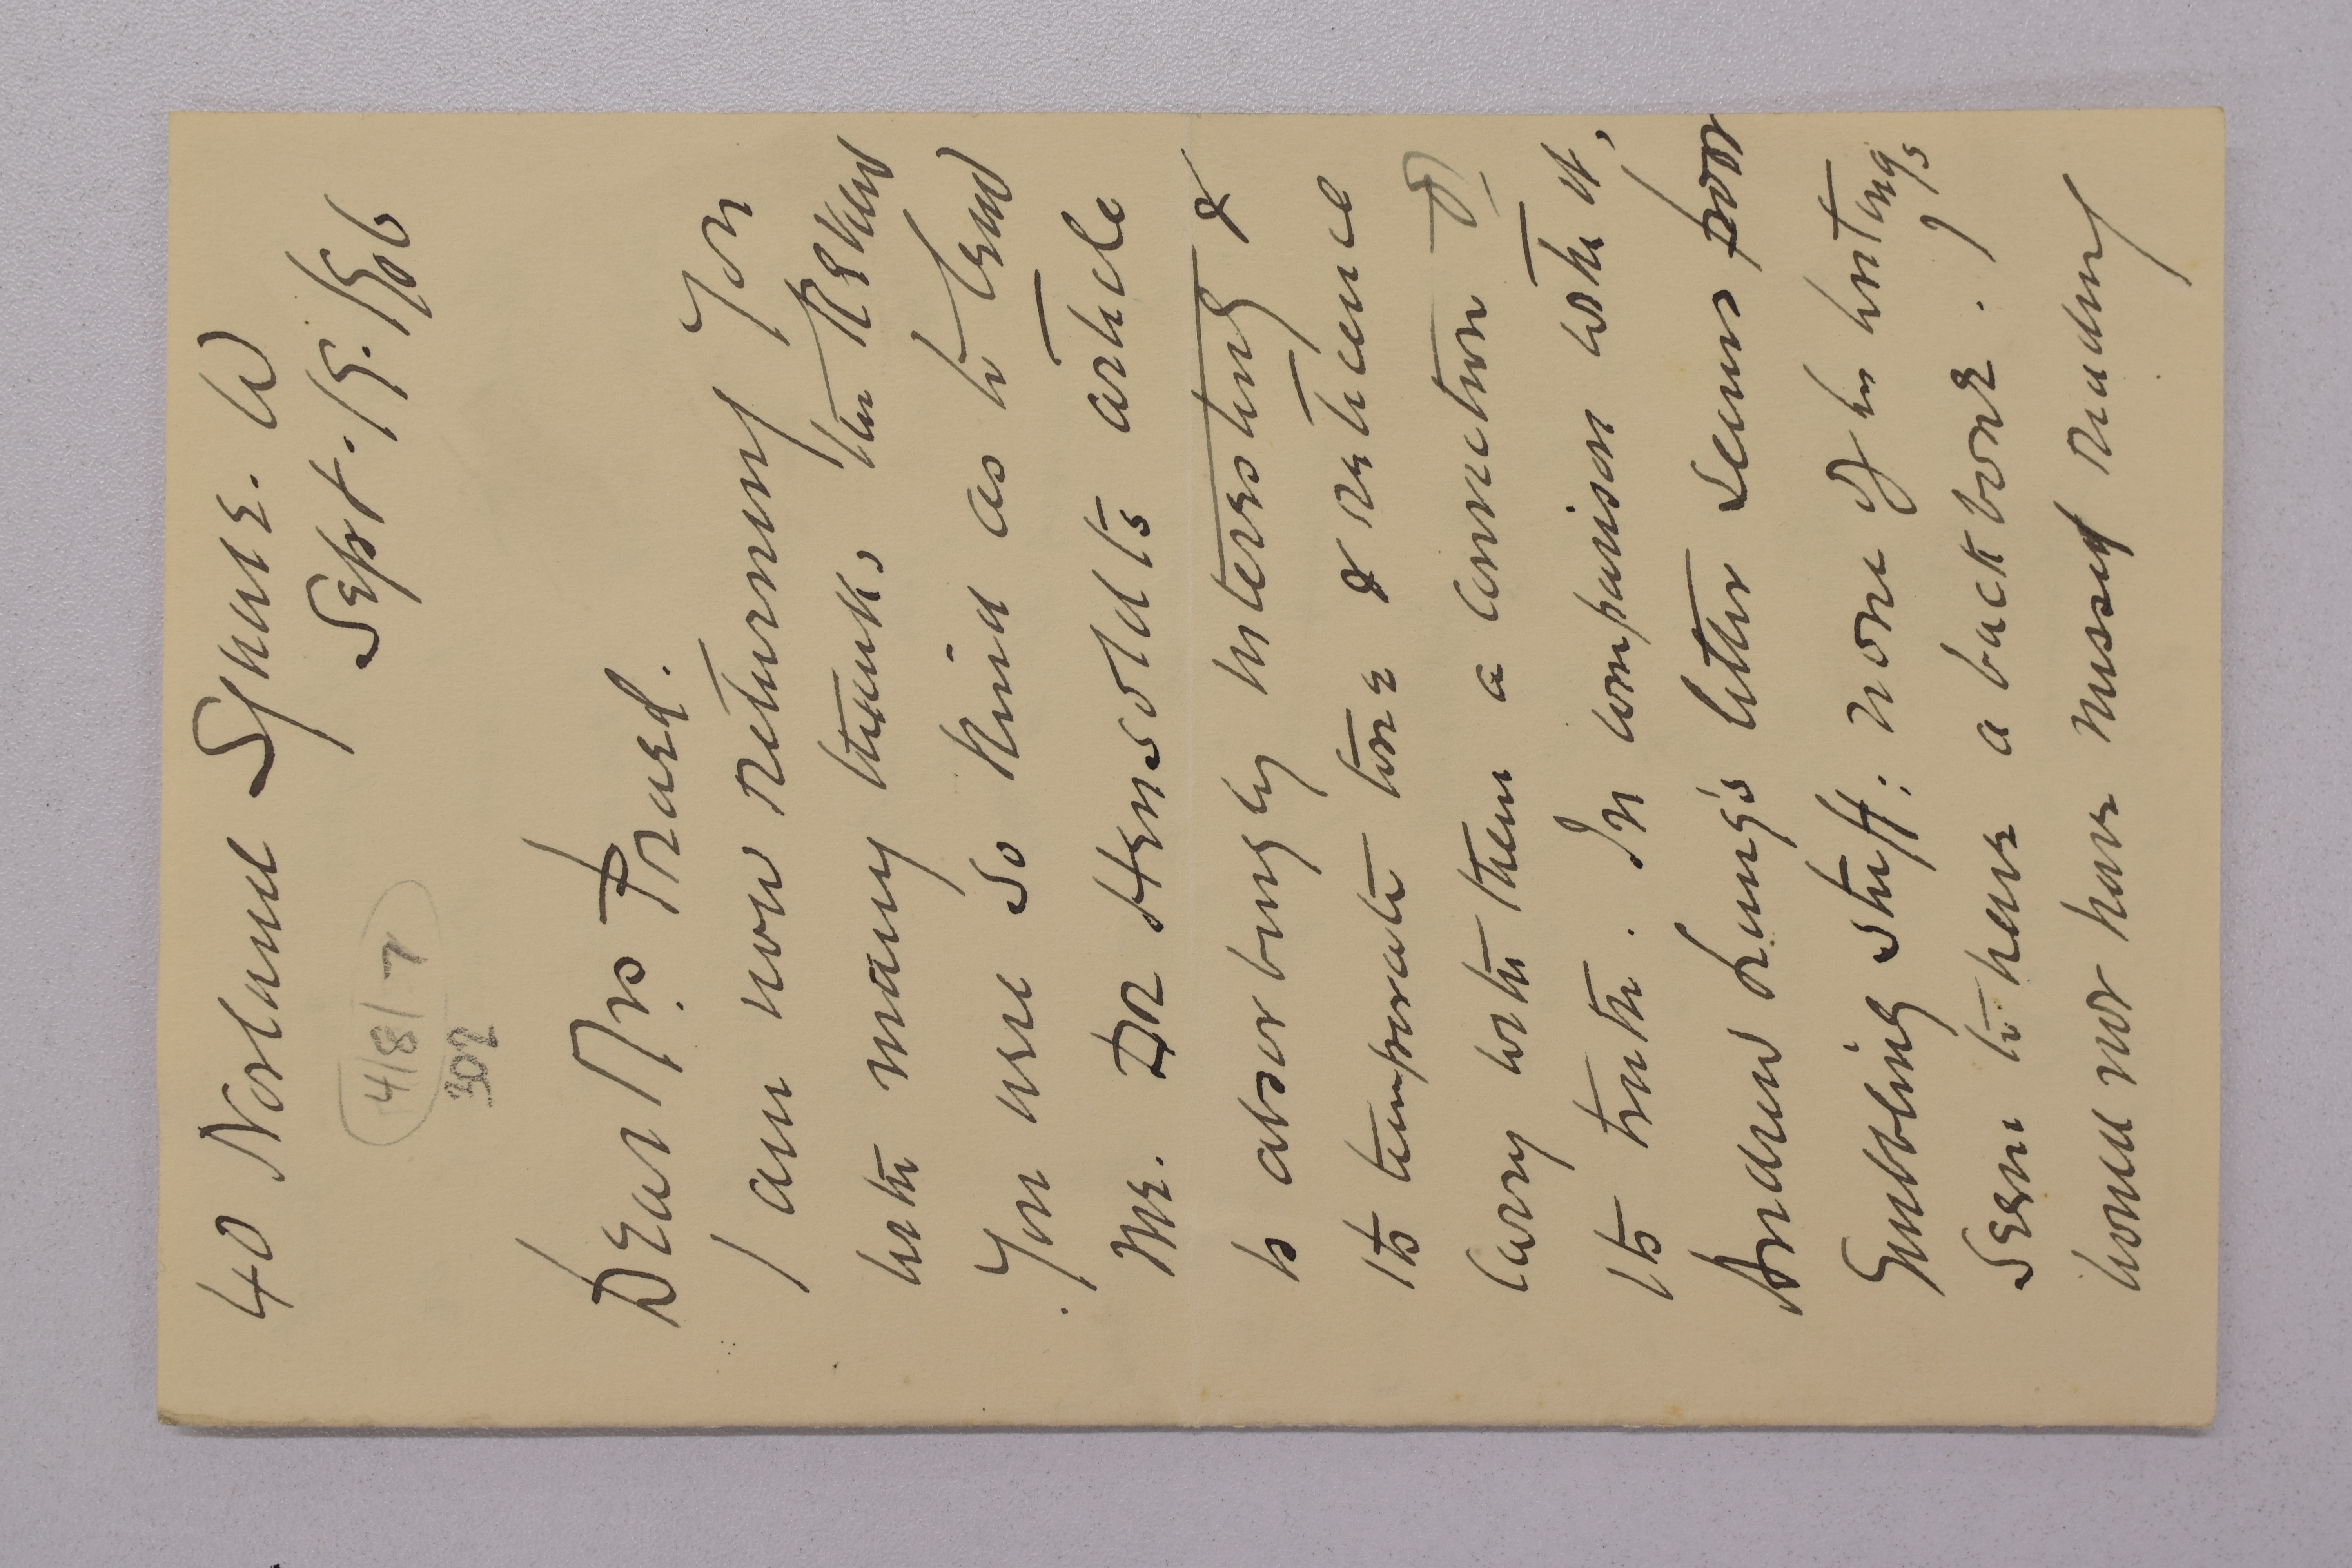 40 Norland Square. W
Sept. 19. 1906
4/8/7
302
Dear Mrs Praed.
I am now returning you
with many thanks the Review
you were so kind as to lend
me. Dr Hensoldt's article
is absorbingly interesting &
its temperate tone & reticence
carry with them a conviction of
its truth. In comparison with it,
Andrew Lang's letter seems poor
Quibbling stuff: none of his writings
seem to have a backbone.
would not have missed reading